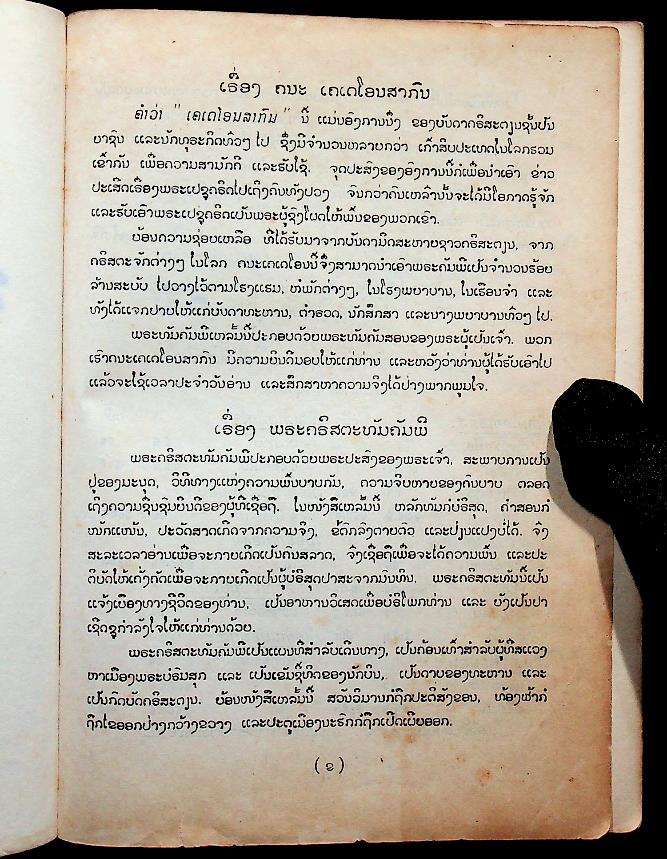 ເຣື່ອງ ຄນະ ເຄເດໂອນສາກົນ
ຄຳວ່າ " ເຄເດໂອນສາກົນ " ນີ້ ແມ່ນອົງການນຶ່ງ ຂອງບັນດາຄຣິສະຕຽນຊັ້ນປັນ
ຍາຊົນ ແລະນັກທຸຣະກິດທົ່ວໆ ໄປ ຊຶ່ງມີຈຳນວນຫລາຍກວ່າ ເກົ້າສິບປະເທດໃນໂລກຣວມ
ເຂົ້າກັນ ເພື່ອຄວາມສາມັກຄີ ແລະຮັບໃຊ້. ຈຸດປະສົງຂອງອົງການນີ້ກໍເພື່ອນຳເອົາ ຂ່າວ
ປະເສີດເຣື່ອງພຣະເຢຊູຄຣິດໄປເຖິງຄົນທັງປວງ ຈົນກວ່າຄົນເຫລົ່ານັ້ນຈະໄດ້ມີໂອກາດຮູ້ຈັກ
ແລະຮັບເອົາພຣະເຢຊູຄຣິດເປັນພຣະຜູ້ຊົງໂຜດໃຫ້ພົ້ນຂອງພວກເຂົາ.
ຍ້ອນຄວາມຊ່ອຍເຫລືອ ທີ່ໄດ້ຮັບມາຈາກບັນດາມິດສະຫາຍຊາວຄຣິສະຕຽນ, ຈາກ
ຄຣິສຕະຈັກຕ່າງໆ ໃນໂລກ ຄນະເຄເດໂອນນີ້ຈຶ່ງສາມາດນຳເອົາພຣະຄັມພີເປັນຈຳນວນຮ້ອຍ
ລ້ານສະບັບ ໄປວາງໄວ້ຕາມໂຮງແຮມ, ຫໍພັກຕ່າງໆ, ໃນໂຮງພຍາບານ, ໃນເຮືອນຈຳ ແລະ
ທັງໄດ້ແຈກຢາຍໃຫ້ແກ່ບັນດາທະຫານ, ຕຳຣວດ, ນັກສຶກສາ ແລະນາງພຍາບານທົ່ວໆ ໄປ.
ພຣະທັມຄັມພີເຫລັ້ມນີ້ປະກອບດ້ວຍພຣະທັມຄັມສອນຂອງພຣະຜູ້ເປັນເຈົ້າ. ພວກ
ເຮົາຄນະເຄເດໂອນສາກົນ ມີຄວາມຍິນດີມອບໃຫ້ແກ່ທ່ານ ແລະຫວັງວ່າທ່ານຜູ້ໄດ້ຮັບເອົາໄປ
ແລ້ວຈະໃຊ້ເວລາປະຈຳວັນອ່ານ ແລະສຶກສາຫາຄວາມຈິງໄດ້ຢ່າງພາກພູມໃຈ.
ເຣື່ອງ ພຣະຄຣິສຕະທັມຄັມພີ
ພຣະຄຣິສຕະທັມຄັມພີປະກອບດ້ວຍພຣະປະສົງຂອງພຣະເຈົ້າ, ສະພາບການເປັນ
ຢູ່ຂອງມະນຸດ, ວິທີທາງແຫ່ງຄວາມພົ້ນບາບກັມ, ຄວາມຈິບຫາຍຂອງຄົນບາບ ຕລອດ
ເຖິງຄວາມຊື່ນຊົມຍິນດີຂອງຜູ້ທີ່ເຊື່ອຖື. ໃນໜັງສືເຫລັ້ມນີ້ ຫລັກທັມກໍບໍຣິສຸດ, ຄຳສອນກໍ
ໜັກແໜ້ນ, ປະວັດສາດເກີດຈາກຄວາມຈິງ, ຂໍ້ຕົກລົງຕາຍຕົວ ແລະປ່ຽນແປງບໍ່ໄດ້. ຈົ່ງ
ສະລະເວລາອ່ານເພື່ອຈະກາຍເກີດເປັນຄົນສລາດ, ຈົ່ງເຊື່ອຖືເພື່ອຈະໄດ້ຄວາມພົ້ນ ແລະປະ
ຕິບັດໃຫ້ເຄັ່ງຄັດເພື່ອຈະກາຍເກີດເປັນຜູ້ບໍຣິສຸດປາສະຈາກມົນທິນ. ພຣະຄຣິສຕະທັມນີ້ເປັນ
ແຈ້ງເຍືອງທາງຊີວິດຂອງທ່ານ, ເປັນອາຫານວິເສດເພື່ອບໍຣິໂພກທ່ານ ແລະ ຍັງເປັນຢາ
ເຊີດຊູກຳລັງໃຈໃຫ້ແກ່ທ່ານດ້ວຍ.
ພຣະຄຣິສຕະທັມຄັມພີເປັນແຜນທີ່ສຳລັບເດີນທາງ, ເປັນຄ້ອນເທົ້າສຳລັບຜູ້ທີ່ສແວງ
ຫາເມືອງພຣະບໍຣົມສຸກ ແລະ ເປັນເຂັມຊີ້ທິດຂອງນັກບິນ, ເປັນດາບຂອງທະຫານ ແລະ
ເປັນກົດບັດຄຣິສະຕຽນ. ຍ້ອນໜັງສືເຫລັ້ມນີ້ ສວັນວິມານກໍຖືກປະຕິສັງຂອນ, ທ້ອງຟ້າກໍ
ຖືກໄຂອອກຢ່າງກວ້າງຂວາງ ແລະປະຕູເມືອງນະຣົກກໍຖືກເປີດເຜີຍອອກ.
(ຂ)